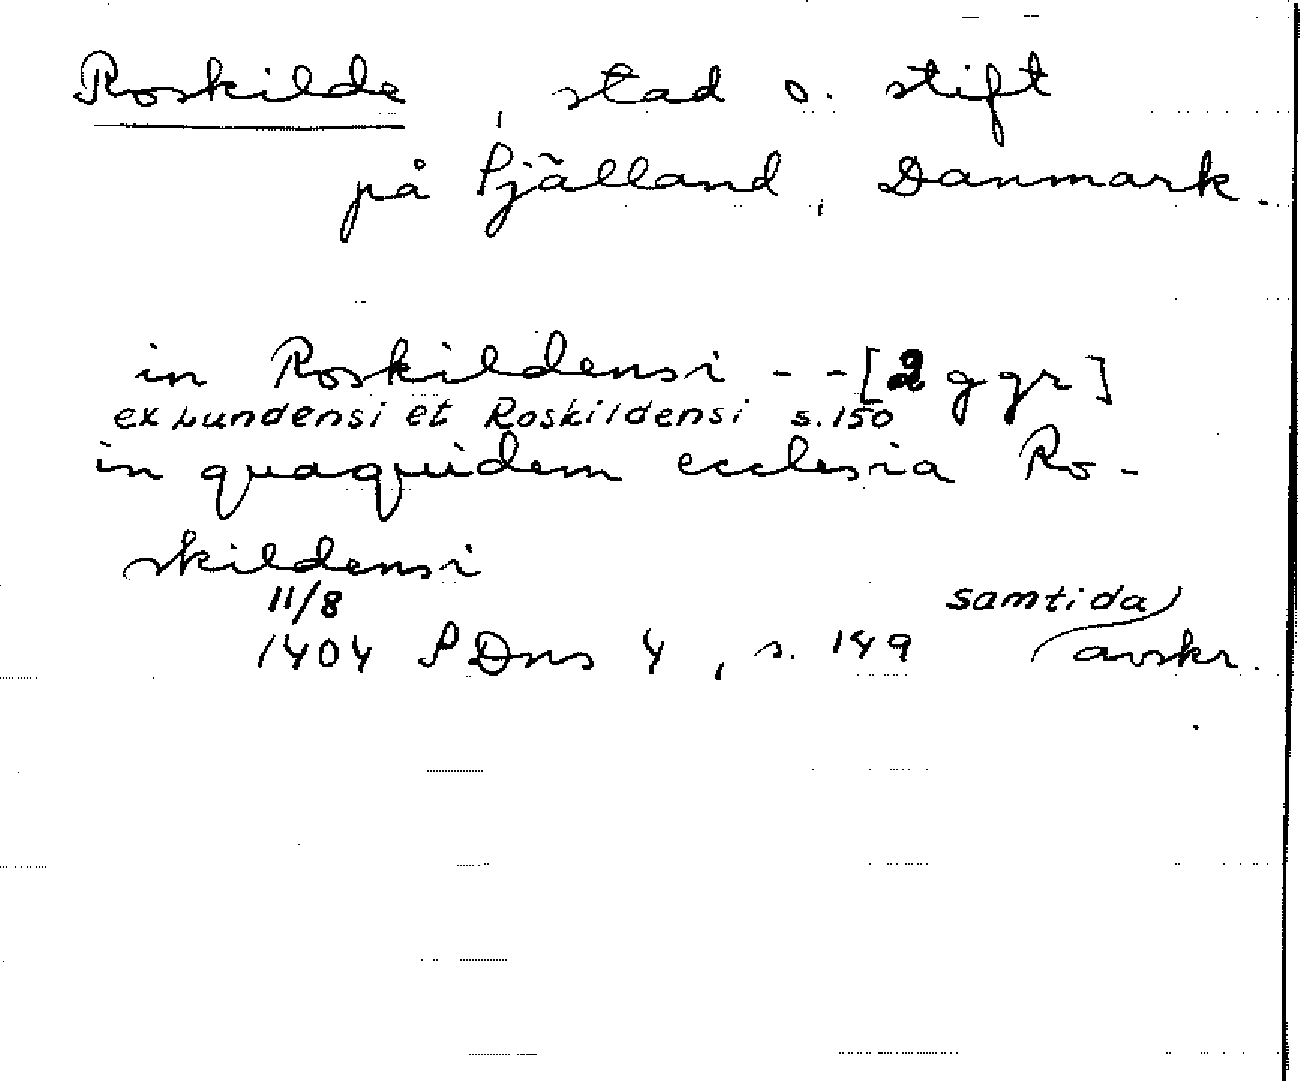 Roskilde, stad o. stift
på Själland, Danmark.
in Roskildensi - - [2 ggr]
ex Lundensi et Roskildensi s. 150
in quaquidem ecclesia Ro-
skildensi
11/8
samtida
1404 SDns 4, s. 149 avskr.